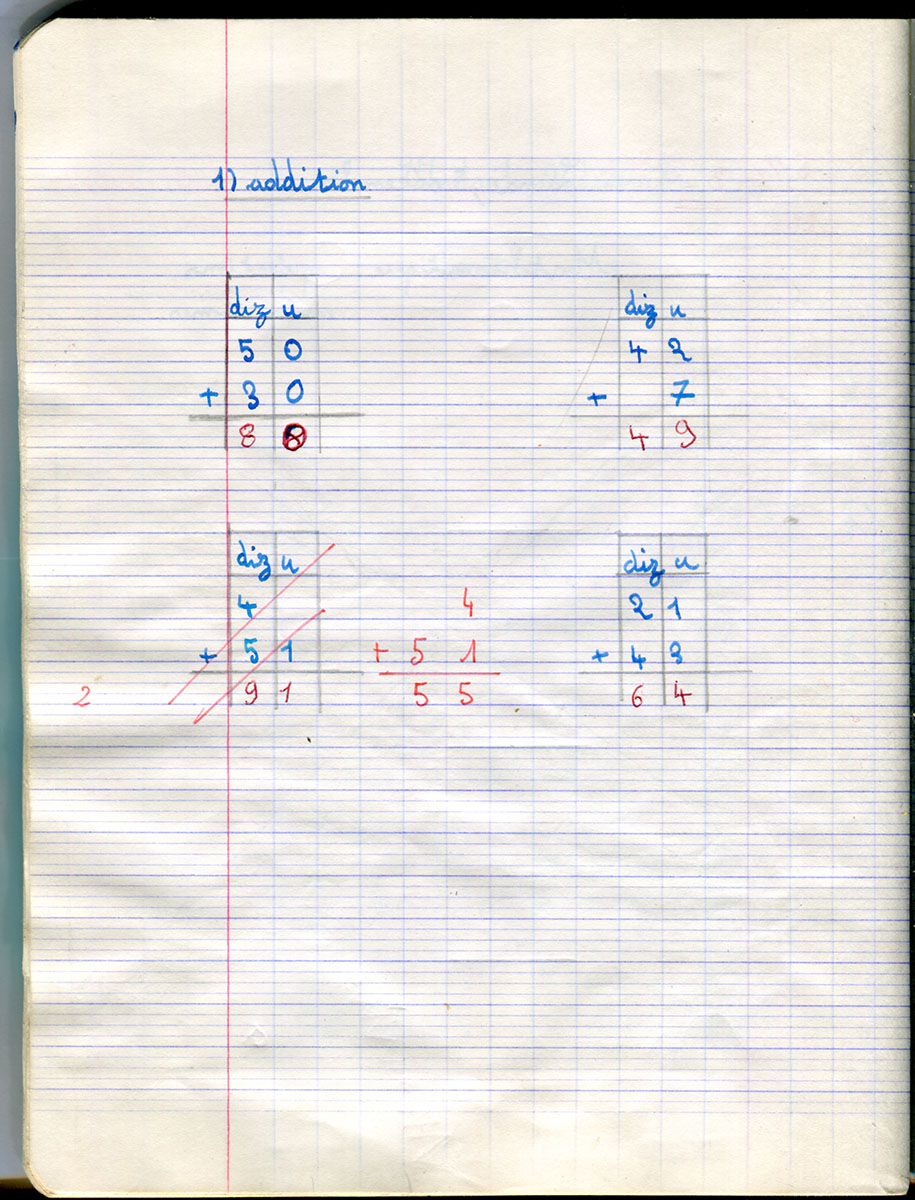 1) addition
diz u
5 0
+ 3 0
8
diz u
4 2
+ 7
4 9
diz u
4
+ 5 1
9 1
4
+ 5 1
5 5
diz u
2 1
+ 4 3
6 4
2